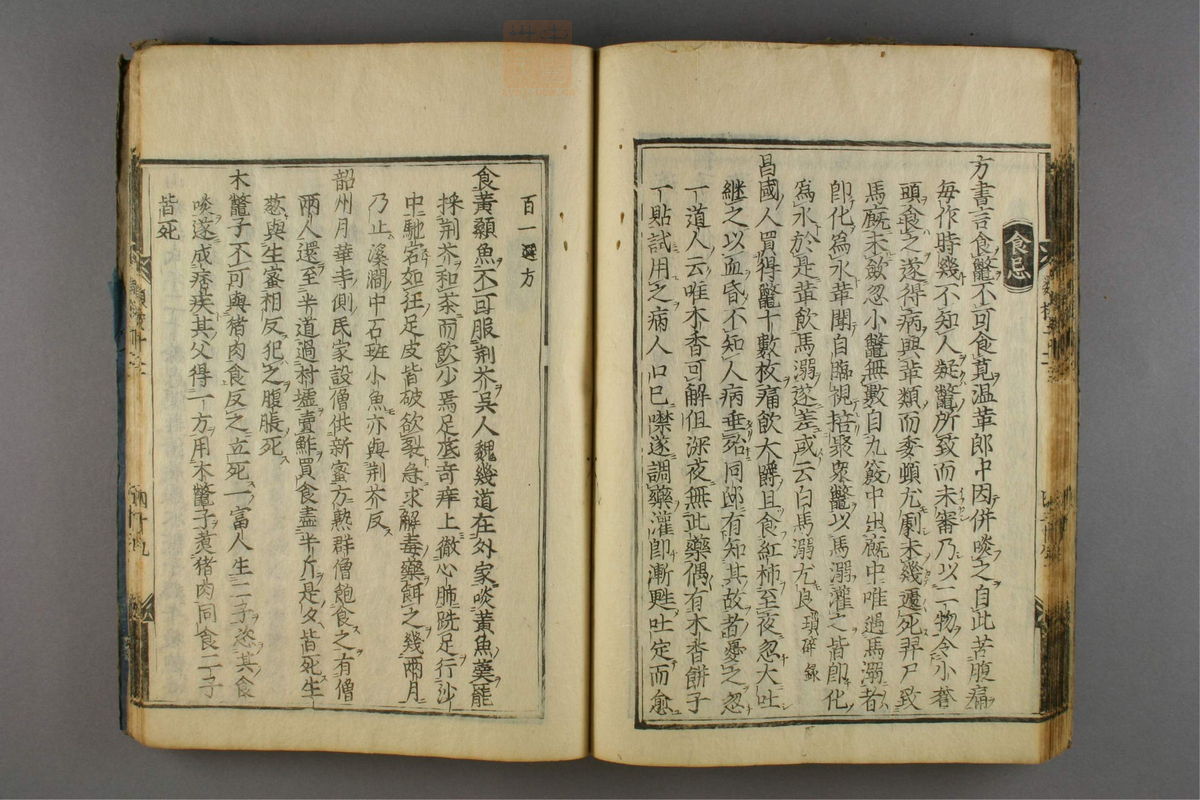 食忌
方書言食鼈不可食莧温革郎中因併啖之自此苦腹痛
毎作時幾不知人疑鼈所致而未審乃以二物令小蒼
頭食之遂得病與革類而委頓尤劇未幾遽死舁尸致
馬厩未歛忽小鼈無數自九竅中出厩中唯遇馬溺者
即化為水革聞自臨視掊聚衆鼈以馬溺灌之皆即化
為水於是革飲馬溺遂差或云白馬溺尤良瑣碎録
昌國人買得鼈十數枚痛飲大爵且食紅柿至夜忽大吐
継之以血昏不知人病垂殆同邸有知其故者憂之忽
一道人云唯木香可解但深夜無此藥偶有木香餅子
一貼試用之病人口已噤遂調藥灌即漸甦吐定而愈
百一選方
食黄顙魚不可服荊芥呉人魏幾道在外家啖黄魚羹罷
採荊芥和茶而飲少焉足底奇痒上徹心肺跣足行沙
中馳宕如狂足皮皆破欲裂急求解毒藥餌之幾兩月
乃止溪澗中石斑小魚亦與荊芥反
韶州月華寺側民家設僧供新蜜方熟群僧飽食之有僧
兩人還至半道過村墟賣鮓買食盡半斤是夕皆死生
葱與生蜜相反犯之腹脹死
木鼈子不可與猪肉食反之立死一富人生二子恣其食
啖遂成痞疾其父得一方用木鼈子煑猪肉同食二子
皆死